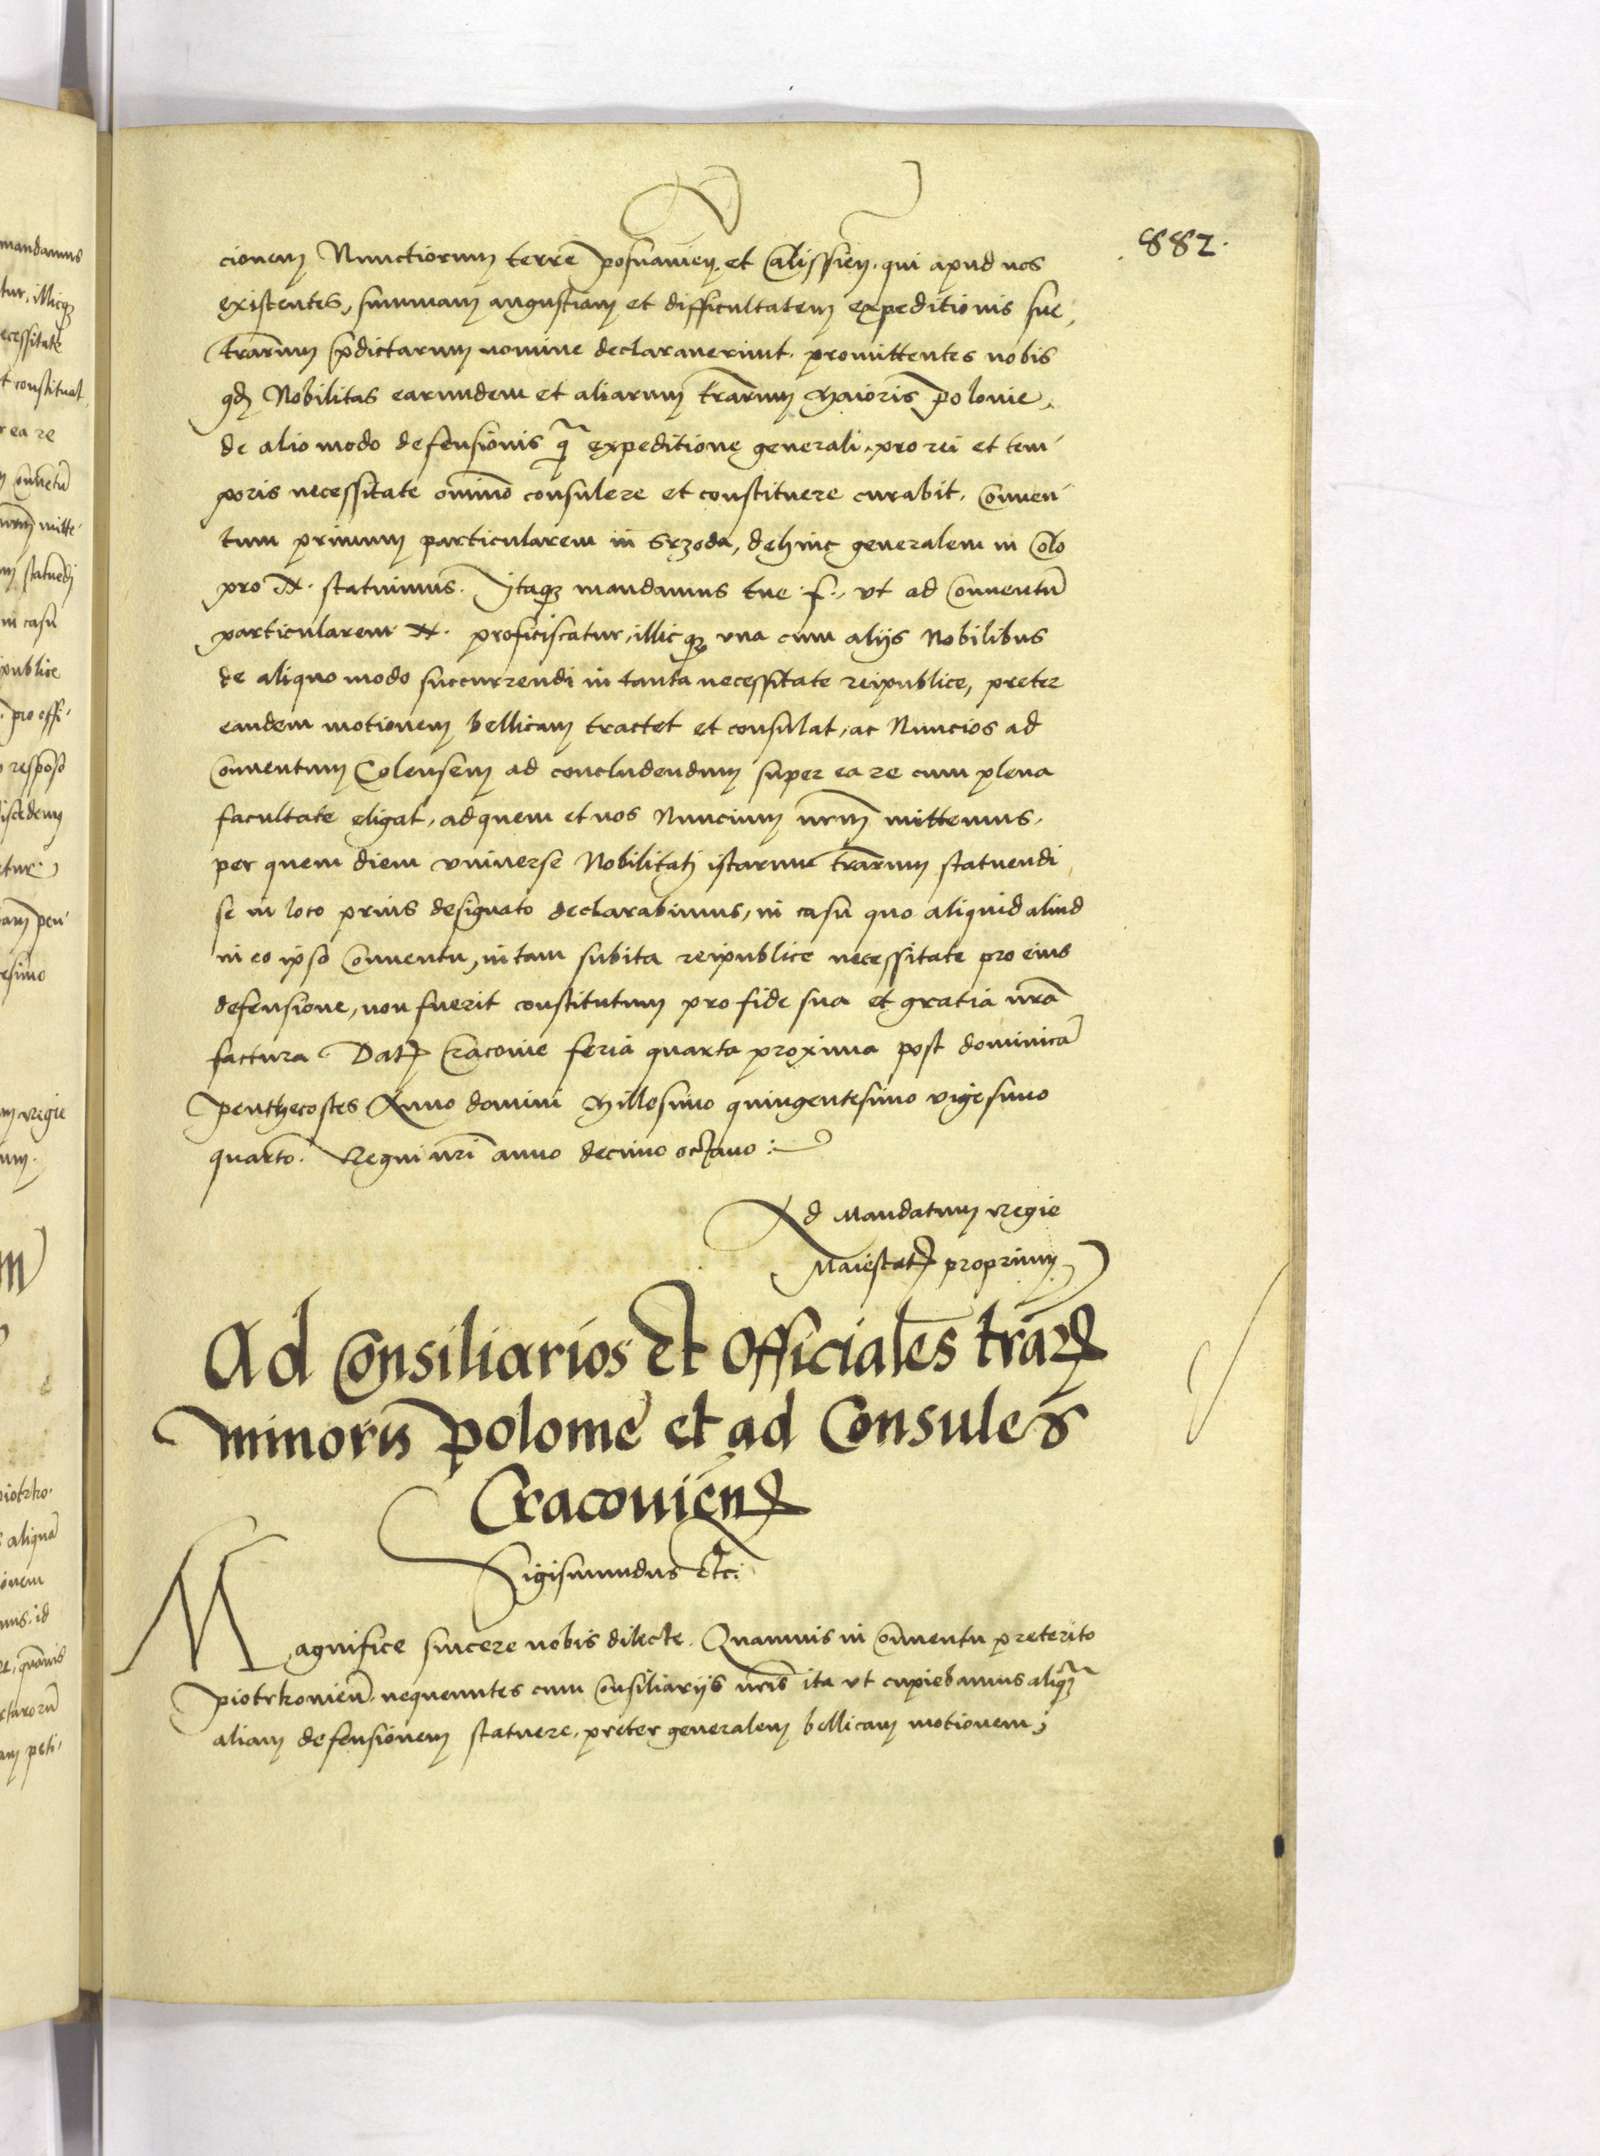 882.
cionem Nunctiorum terre posnanien. et Calissien. qui apud nos
existentes, summam angustiam et difficultatem expeditionis sue,
trarum predictarum nomine declaraverunt. promittentes nobis
qd Nobilitas earundem et aliarum trarum Maioris Polonie,
de alio modo defensionis q expeditione generali, pro rei et tem
poris necessitate omnino consulere et constituere curabit. Conven
tum primum particularem in Srzoda, dehinc generalem in Colo
pro N. statuimus. Itaque mandamus tue f., vt ad Conventu
particularem N. proficiscatur, illicque vna cum aliis Nobilibus
de aliquo modo succurrendi in tanta necessitate reipublice, preter
eandem motionem bellicam tractet et consulat, ac Nuncios ad
Conventum Colensem ad concludendum super ea re cum plena
facultate eligat, ad quem et nos Nuncium nrm mittemus,
per quem diem vniverse Nobilitati istarum trarum statuendi
se in loco prius designato declarabimus, in casu quo aliquid aliud
in eo ipso Conventu, in tam subita reipublice necessitate pro eius
defensione, non fuerit constitutum pro fide sua et gratia nra
factura. Dat Cracovie feria quarta proxima post dominica
penthecostes Anno domini Millesimo quingentesimo vigesimo
quarto. Regni nri anno decimo octavo :
Ad Mandatum Regie
Maiestat proprium
Ad Consiliarios et Officiales trar
minoris Polonie et ad Consules
Cracovien
Sigismundus etc:
Magnifice sincere nobis dilecte. Quamvis in Conventu preterito
piotrkovien. nequeuntes cum Consiliariis nris ita vt cupiebamus aliq
aliam defensionem statuere, preter generalem bellicam motionem,